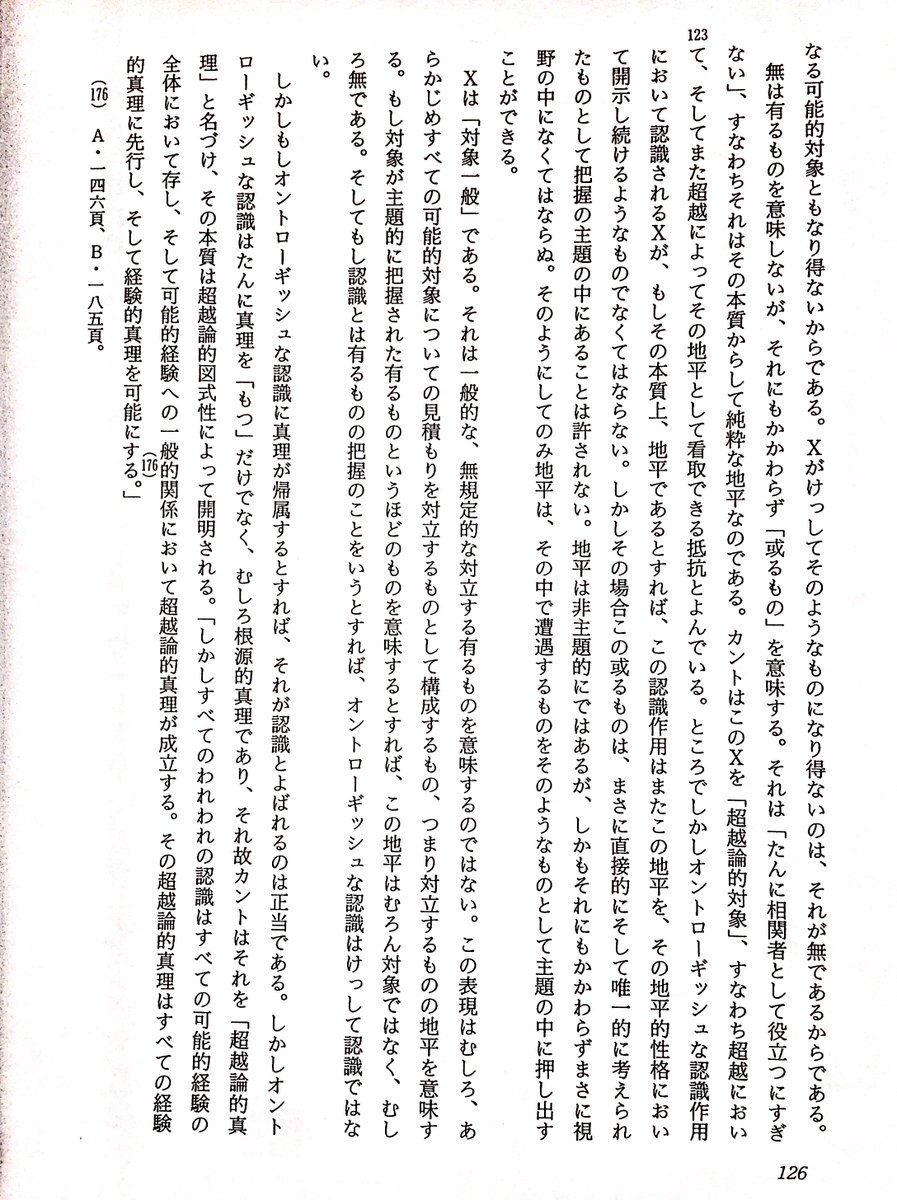 なる可能的対象ともなり得ないからである。Xがけっしてそのようなものになり得ないのは、それが無であるからである。
無は有るものを意味しないが、それにもかかわらず「或るもの」を意味する。それは「たんに相関者として役立つにすぎ
ない」、すなわちそれはその本質からして純粋な地平なのである。カントはこのXを「超越論的対象」、すなわち超越におい
123
て、そしてまた超越によってその地平として看取できる抵抗とよんでいる。ところでしかしオントローギッシュな認識作用
において認識されるXが、もしその本質上、地平であるとすれば、この認識作用はまたこの地平を、その地平的性格におい
て開示し続けるようなものでなくてはならない。しかしその場合この或るものは、まさに直接的にそして唯一的に考えられ
たものとして把握の主題の中にあることは許されない。地平は非主題的にではあるが、しかもそれにもかかわらずまさに視
野の中になくてはならぬ。そのようにしてのみ地平は、その中で遭遇するものをそのようなものとして主題の中に押し出す
ことができる。
Xは「対象一般」である。それは一般的な、無規定的な対立する有るものを意味するのではない。この表現はむしろ、あ
らかじめすべての可能的対象についての見積もりを対立するものとして構成するもの、つまり対立するものの地平を意味す
る。もし対象が主題的に把握された有るものというほどのものを意味するとすれば、この地平はむろん対象ではなく、むし
ろ無である。そしてもし認識とは有るものの把握のことをいうとすれば、オントローギッシュな認識はけっして認識ではな
い。
しかしもしオントローギッシュな認識に真理が帰属するとすれば、それが認識とよばれるのは正当である。しかしオント
ローギッシュな認識はたんに真理を「もつ」だけでなく、むしろ根源的真理であり、それ故カントはそれを「超越論的真
理」と名づけ、その本質は超越論的図式性によって開明される。「しかしすべてのわれわれの認識はすべての可能的経験の
全体において存し、そして可能的経験への一般的関係において超越論的真理が成立する。その超越論的真理はすべての経験
的真理に先行し、そして経験的真理を可能にする。」(176)
(176) A・一四六頁、B・一八五頁。
126